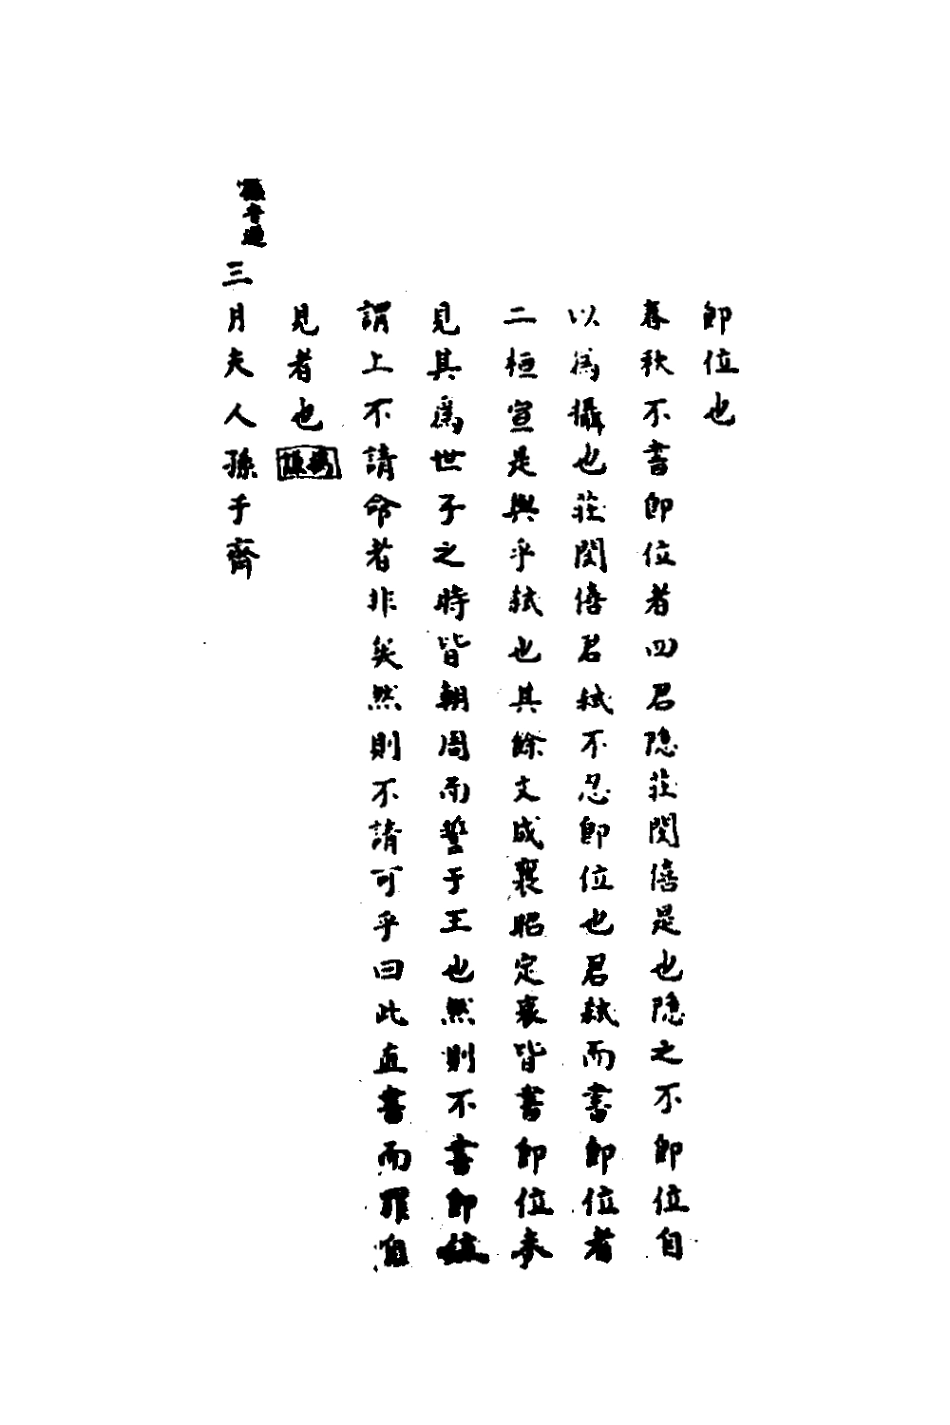 即位也
春秋不書即位者四君隐莊閔僖是也隐之不即位自
以為攝也莊閔僖君弒不忍即位也君弒而書即位者
二桓宣是與乎弒也其餘文成襄昭定哀皆書即位未
見其爲世子之時皆朝周而誓于王也然則不書即位
謂上不請命者非矣然則不請可乎曰此直書而罪自
見者也
孫音遜
三月夫人孫于齊